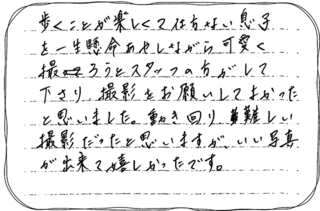 歩くことが楽しくて仕方ない息子
を一生懸命あやしながら可愛く
撮ろうとスタッフの方がして
下さり、撮影をお願いしてよかった
と思いました。動き回り、難しい
撮影だったと思いますが、いい写真
が出来て嬉しかったです。